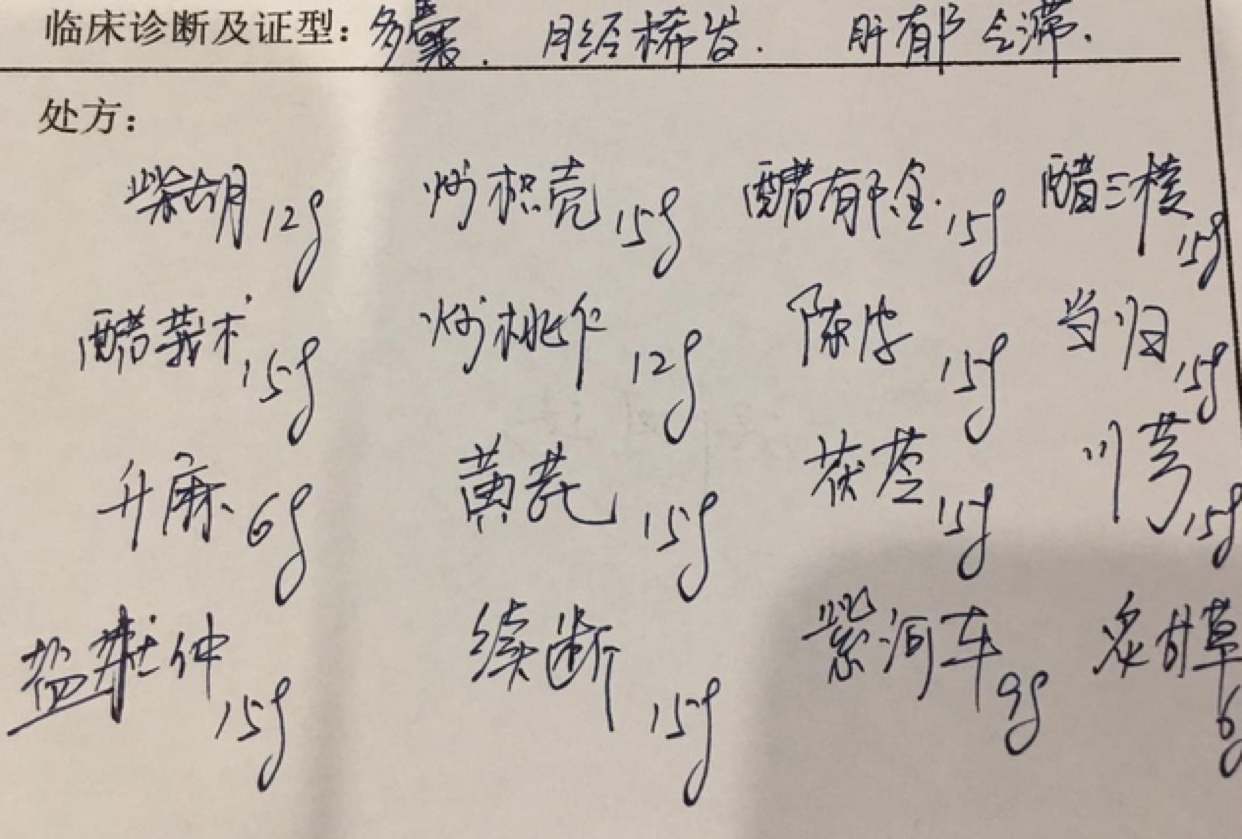 临床诊断及证型：多囊. 月经稀发. 肝郁气滞.
处方：
柴胡12g 炒枳壳15g 醋郁金15g 醋三棱15g
醋莪术15g 炒桃仁12g 陈皮15g 当归15g
升麻6g 黄芪15g 茯苓15g 川芎15g
盐杜仲15g 续断15g 紫河车9g 炙甘草6g